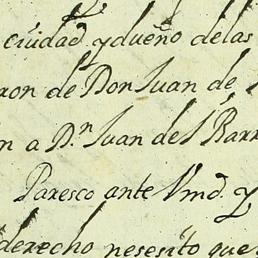 ciudad y dueño de las
ron de Don Juan de
n a D.n Juan del Barr
Paresco ante Vmd. y
derecho nesesito que